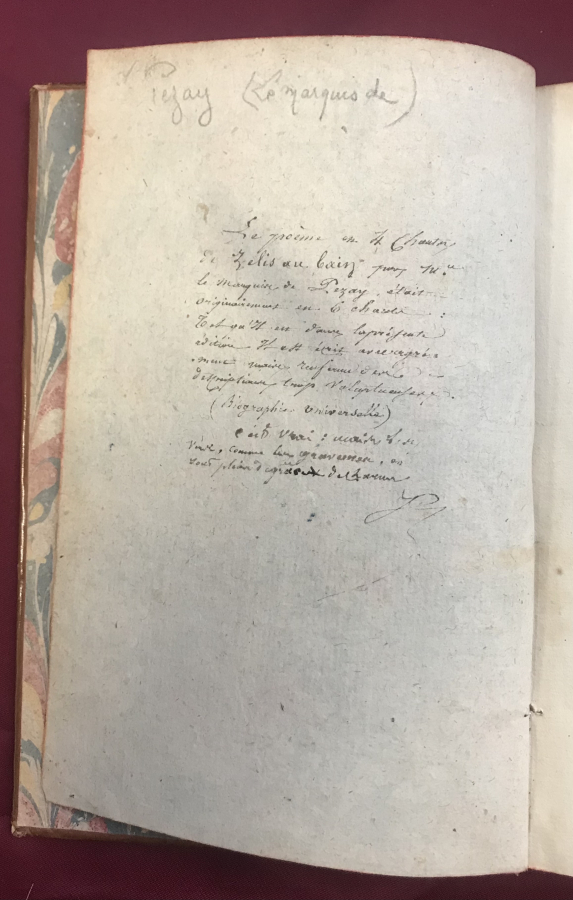 Pezay (Le marquis de)
Le poëme en 4 Chants
de Zélis au bain par Mr
le Marquis de Pezay, était
originairement en 6 chants :
en dans la présente
édition Il est écrit avec agré-
ment, mais renferme des
descriptions trop voluptueuses.
(Biographie universelle)
c'est vrai : mais
vers, comme les gravures,
sont pleins de grâce